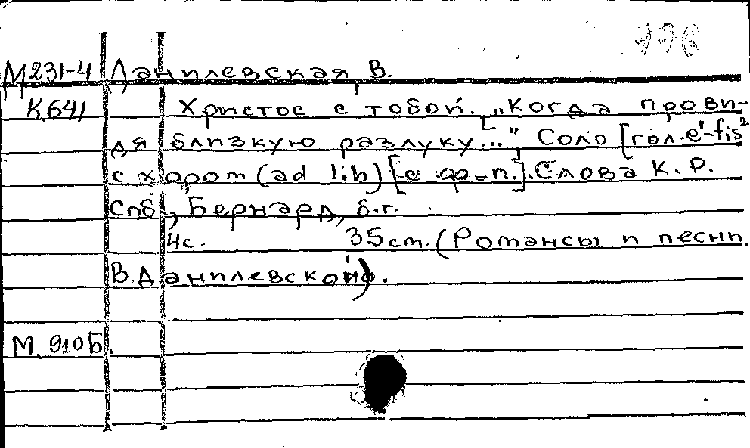 776
М231-4 Данилевская, В.
К641 Христос с тобой. ["Когда прови-
дя близкую разлуку...", Соло [гол. e¹-fis²]
с хором (ad lib) [с ф-п.]. Слова К. Р.
Спб, Бернард, б.г.
4с. 35см. (Романсы и песни
В. Данилевской).
М. 910Б